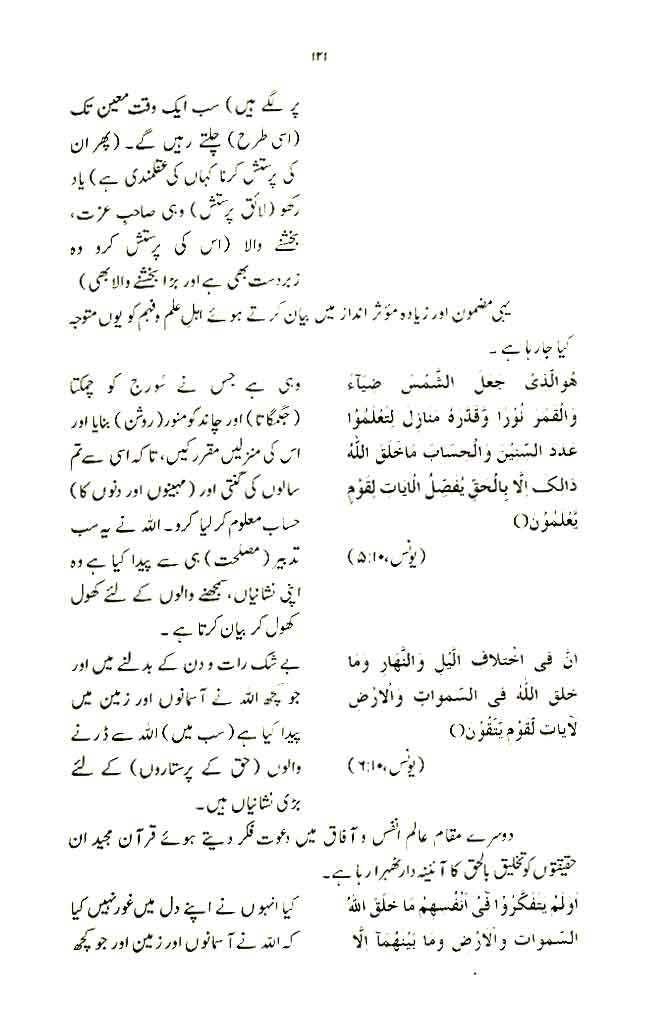 ۱۲۱
پر لگے ہیں) سب ایک وقت معین تک
(اسی طرح) چلتے رہیں گے۔ (پھر ان
کی پرستش کرنا کہاں کی عقلمندی ہے) یاد
رکھو (لائق پرستش) وہی صاحبِ عزت،
بخشنے والا (اس کی پرستش کرو وہ
زبردست بھی ہے اور بڑا بخشنے والا بھی)
یہی مضمون اور زیادہ مؤثر انداز میں بیان کرتے ہوئے اہلِ علم و فہم کو یوں متوجہ
کیا جا رہا ہے۔
هُوالَّذِىْ جَعَلَ الشَّمْسَ ضِيَآءً
وَالْقَمَرَ نُوْرًا وَّقَدَّرَهٗ مَنَازِلَ لِتَعْلَمُوْا
عَدَدَ السِّنِيْنَ وَالْحِسَابَ مَاخَلَقَ اللّٰهُ
ذَالِكَ اِلَّا بِالْحَقِّ يُفَصِّلُ الْاٰيَاتِ لِقَوْمٍ
يَّعْلَمُوْنَ()
(یونس، ۱۰:۵)
وہی ہے جس نے سُورج کو چمکتا
(جگمگاتا) اور چاند کو منور (روشن) بنایا اور
اس کی منزلیں مقرر کیں، تاکہ اسی سے تم
سالوں کی گنتی اور (مہینوں اور دنوں کا)
حساب معلوم کر لیا کرو۔ اللہ نے یہ سب
تدبیر (مصلحت) ہی سے پیدا کیا ہے وہ
اپنی نشانیاں، سمجھنے والوں کے لئے کھول
کھول کر بیان کرتا ہے۔
اِنَّ فِى اخْتِلَافِ الَّيْلِ وَالنَّهَارِ وَمَا
خَلَقَ اللّٰهُ فِى السَّمٰوَاتِ وَالْاَرْضِ
لَاٰيَاتٍ لِّقَوْمٍ يَّتَّقُوْنَ()
(یونس، ۱۰:۶)
بے شک رات و دن کے بدلنے میں اور
جو کچھ اللہ نے آسمانوں اور زمین میں
پیدا کیا ہے (سب میں) اللہ سے ڈرنے
والوں (حق کے پرستاروں) کے لئے
بڑی نشانیاں ہیں۔
دوسرے مقام عالم انفس و آفاق میں دعوت فکر دیتے ہوئے قرآن مجید ان
حقیقتوں کو تخلیق بالحق کا آئینہ دار ٹھہرا رہا ہے۔
اَوَلَمْ يَتَفَكَّرُوْا فِىْ اَنْفُسِهِمْ مَا خَلَقَ اللّٰهُ
السَّمٰوَاتِ وَالْاَرْضَ وَمَا بَيْنَهُمَآ اِلَّا
کیا انہوں نے اپنے دل میں غور نہیں کیا
کہ اللہ نے آسمانوں اور زمین اور جو کچھ